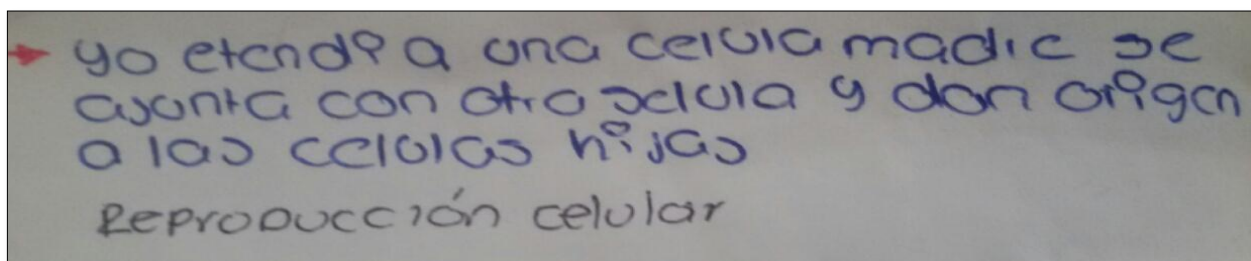 yo etendi a una celula madre se
ajunta con otra selula y dan origen
a las celulas hijas
Reproducción celular